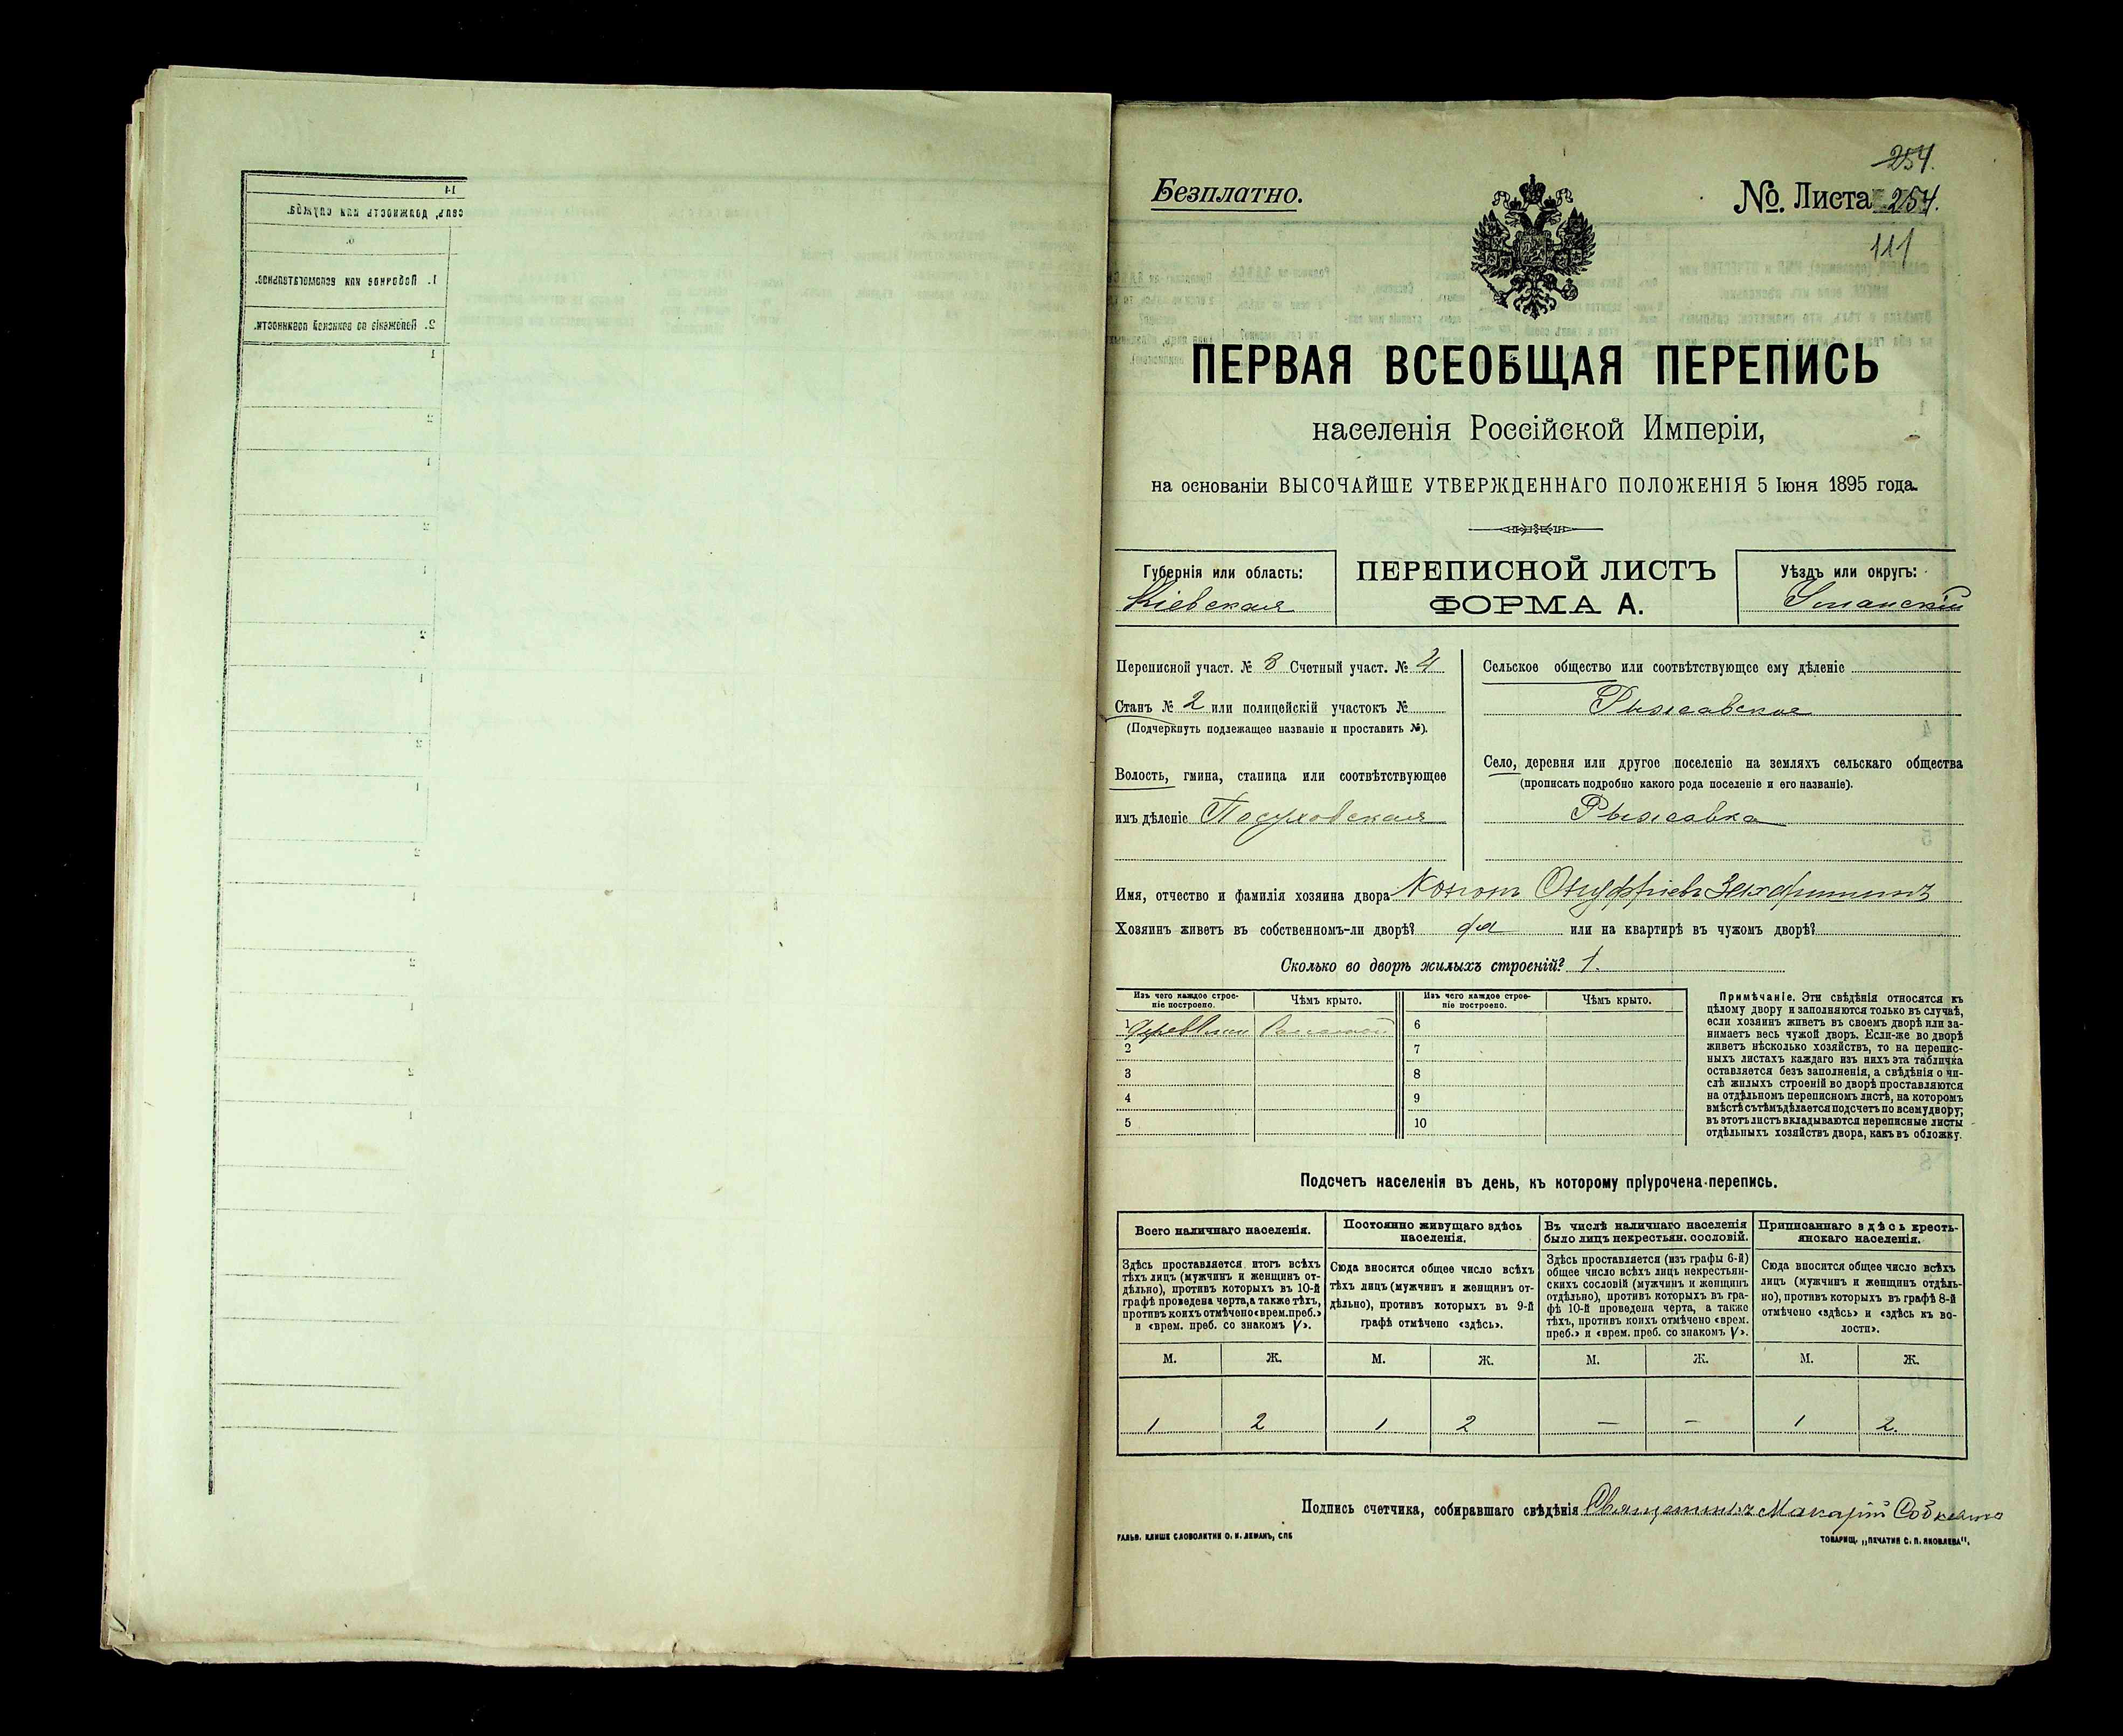 254.
Безплатно.
№. Листа 254.
111
ПЕРВАЯ ВСЕОБЩАЯ ПЕРЕПИСЬ
населенія Россійской Имперіи,
на основаніи ВЫСОЧАЙШЕ УТВЕРЖДЕННАГО ПОЛОЖЕНІЯ 5 Іюня 1895 года.
Губернія или область:
Кіевская
ПЕРЕПИСНОЙ ЛИСТЪ
ФОРМА А.
Уѣздъ или округъ:
Уманскій
Переписной участ. № 8 Счетный участ. № 4
Станъ № 2 или полицейскій участокъ №
(Подчеркнуть подлежащее названіе и проставить №).
Волость, гмина, станица или соотвѣтствующее
имъ дѣленіе
Сельское общество или соотвѣтствующее ему дѣленіе
Рыжавское
Село, деревня или другое поселеніе на земляхъ сельскаго общества
(прописать подробно какого рода поселеніе и его названіе).
Рыжавка
Имя, отчество и фамилія хозяина двора
Хозяинъ живетъ въ собственномъ-ли дворѣ? да или на квартирѣ въ чужомъ дворѣ?
Сколько во дворѣ жилыхъ строеній? 1.
Изъ чего каждое строе-
ніе построено.
Чѣмъ крыто.
Изъ чего каждое строе-
ніе построено.
Чѣмъ крыто.
1
2
3
4
5
6
7
8
9
10
Примѣчаніе. Эти свѣдѣнія относятся къ
цѣлому двору и заполняются только въ случаѣ,
если хозяинъ живетъ въ своемъ дворѣ или за-
нимаетъ весь чужой дворъ. Если-же во дворѣ
живетъ нѣсколько хозяйствъ, то на перепис-
ныхъ листахъ каждаго изъ нихъ эта табличка
оставляется безъ заполненія, а свѣдѣнія о чи-
слѣ жилыхъ строеній во дворѣ проставляются
на отдѣльномъ переписномъ листѣ, на которомъ
вмѣстѣ съ тѣмъ дѣлается подсчетъ по всему двору;
въ этотъ листъ вкладываются переписные листы
отдѣльныхъ хозяйствъ двора, какъ въ обложку.
Подсчетъ населенія въ день, къ которому пріурочена перепись.
Всего наличнаго населенія.
Постоянно живущаго здѣсь
населенія.
Въ числѣ наличнаго населенія
было лицъ некрестьян. сословій.
Приписаннаго здѣсь кресть-
янскаго населенія.
Здѣсь проставляется итогъ всѣхъ
тѣхъ лицъ (мужчинъ и женщинъ от-
дѣльно), противъ которыхъ въ 10-й
графѣ проведена черта, а также тѣхъ,
противъ коихъ отмѣчено «врем. преб.»
и «врем. преб. со знакомъ V».
Сюда вносится общее число всѣхъ
тѣхъ лицъ (мужчинъ и женщинъ от-
дѣльно), противъ которыхъ въ 9-й
графѣ отмѣчено «здѣсь».
Здѣсь проставляется (изъ графы 6-й)
общее число всѣхъ лицъ некрестьян-
скихъ сословій (мужчинъ и женщинъ
отдѣльно), противъ которыхъ въ гра-
фѣ 10-й проведена черта, а также
тѣхъ, противъ коихъ отмѣчено «врем.
преб.» и «врем. преб. со знакомъ V».
Сюда вносится общее число всѣхъ
лицъ (мужчинъ и женщинъ отдѣль-
но), противъ которыхъ въ графѣ 8-й
отмѣчено «здѣсь» и «здѣсь къ во-
лости».
М. Ж. М. Ж. М. Ж. М. Ж.
1 2 1 2 — — 1 2.
Подпись счетчика, собиравшаго свѣдѣнія Священникъ Макарій
ГАЛЬВ. КЛИШЕ СЛОВОЛИТНИ О. И. ЛЕМАНЪ, СПБ
ТОВАРИЩ. „ПЕЧАТНЯ С. П. ЯКОВЛЕВА".